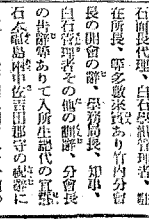 石南長代理、白石學組管理者、駐
在所長、等多數來賓あり竹内分會
長の開會の辭、學務局長、知事、
白石管理者その他の訓辭、分會長
の告辭等ありて入所生総代の宣誓
石太郎島附中佐吉田郡守の祝辭に